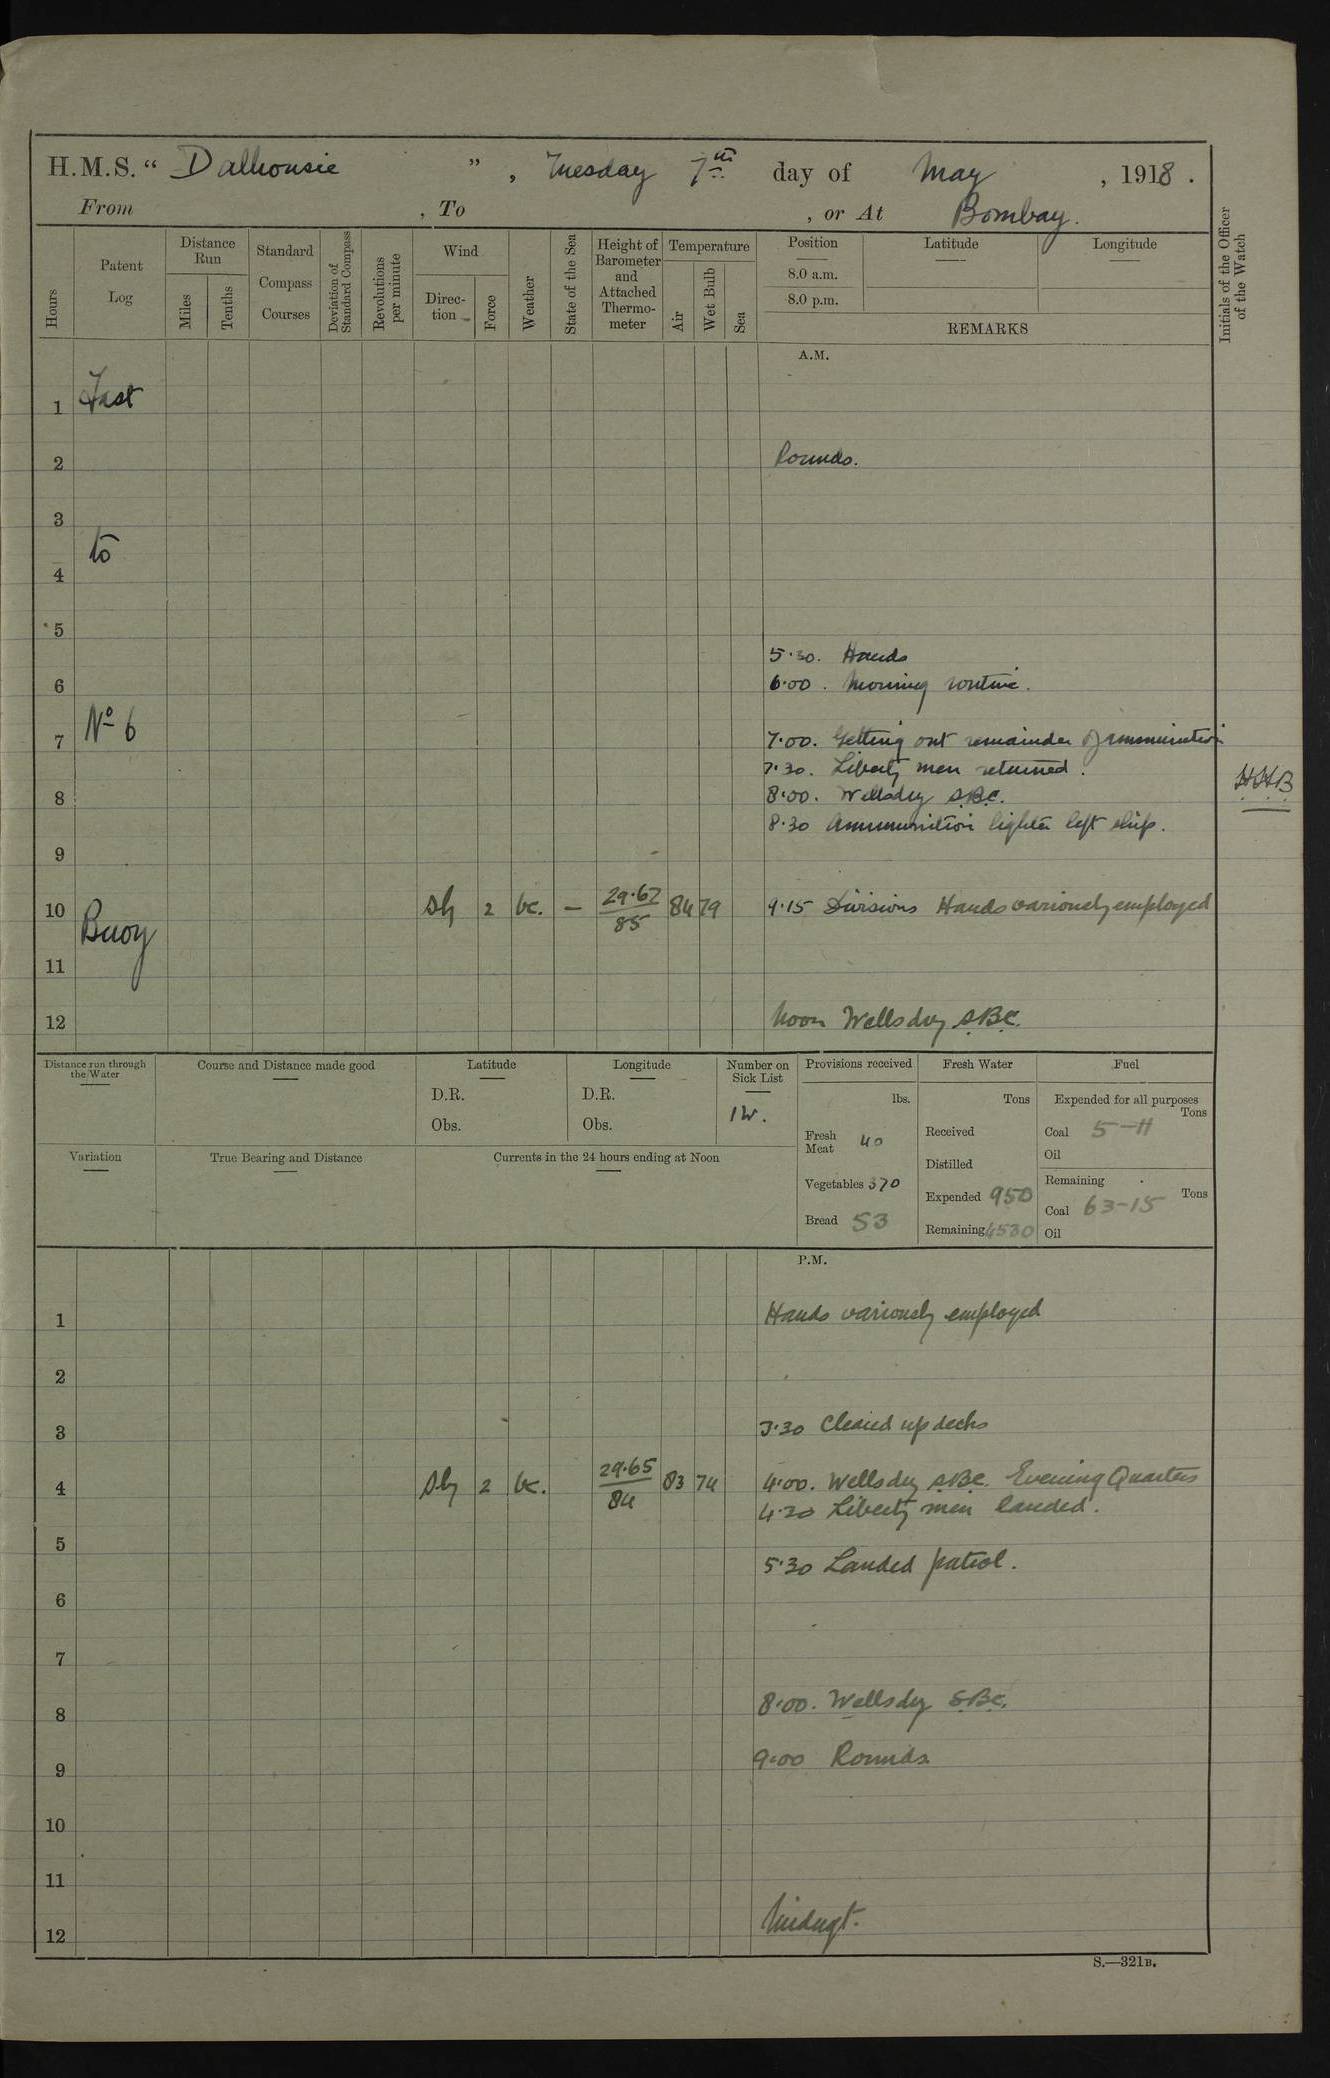 H.M.S. “ Dalhousie ” , Tuesday 7th day of May , 1918 .
From , To , or At Bombay.
Hours
Patent Log
Distance Run
Miles
Tenths
Standard Compass Courses
Deviation of Standard Compass
Revolutions per minute
Wind
Direc-tion
Force
Weather
State of the Sea
Height of Barometer and Attached Thermo-meter
Temperature
Air
Wet Bulb
Sea
Position
8.0 a.m.
8.0 p.m.
Latitude
Longitude
REMARKS
Initials of the Officer of the Watch
A.M.
1 Fast
2 Rounds.
3
to
4
5
5.30. Hands
6 6.00. Morning routine.
No 6
7 7.00. Getting out remainder of ammunition
7.30. Liberty men returned.
HHB
8 8.00. Wellsdry S.B.C.
8.30 Ammunition lighter left ship.
9
10 Sly 2 bc. — 29.62 84 79 9.15 Divisions Hands variously employed
85
Buoy
11
12 Noon Wellsdry S.B.C.
Distance run through the Water
Course and Distance made good
Latitude
D.R.
Obs.
Longitude
D.R.
Obs.
Number on Sick List
1W.
Provisions received
lbs.
Fresh Meat 40
Vegetables 370
Bread 53
Fresh Water
Tons
Received
Distilled
Expended 950
Remaining 4530
Fuel
Expended for all purposes
Tons
Coal 5-11
Oil
Remaining
Tons
Coal 63-15
Oil
Variation
True Bearing and Distance
Currents in the 24 hours ending at Noon
P.M.
1 Hands variously employed
2
3 3.30 Cleared up decks
4 Sly 2 bc. 29.65 83 74 4.00. Wellsdry S.B.C. Evening Quarters
84
4.20 Liberty men landed.
5
5.30 Landed patrol.
6
7
8 8.00. Wellsdry S.B.C.
9 9.00 Rounds.
10
11
12 Midngt.
S.—321B.